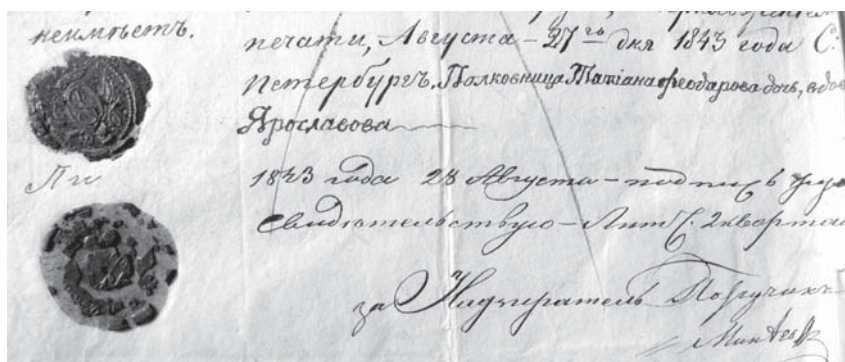 неимѣетъ.
печати, Августа – 27го дня 1843 года С.
Петербургъ. Полковница Татiана Феодарова дочь, вдов
Ярославова
1843 года 28 Августа – подпись
Свидѣтельствую – Лит. 2 кварта
за Надзиратель Поручикъ